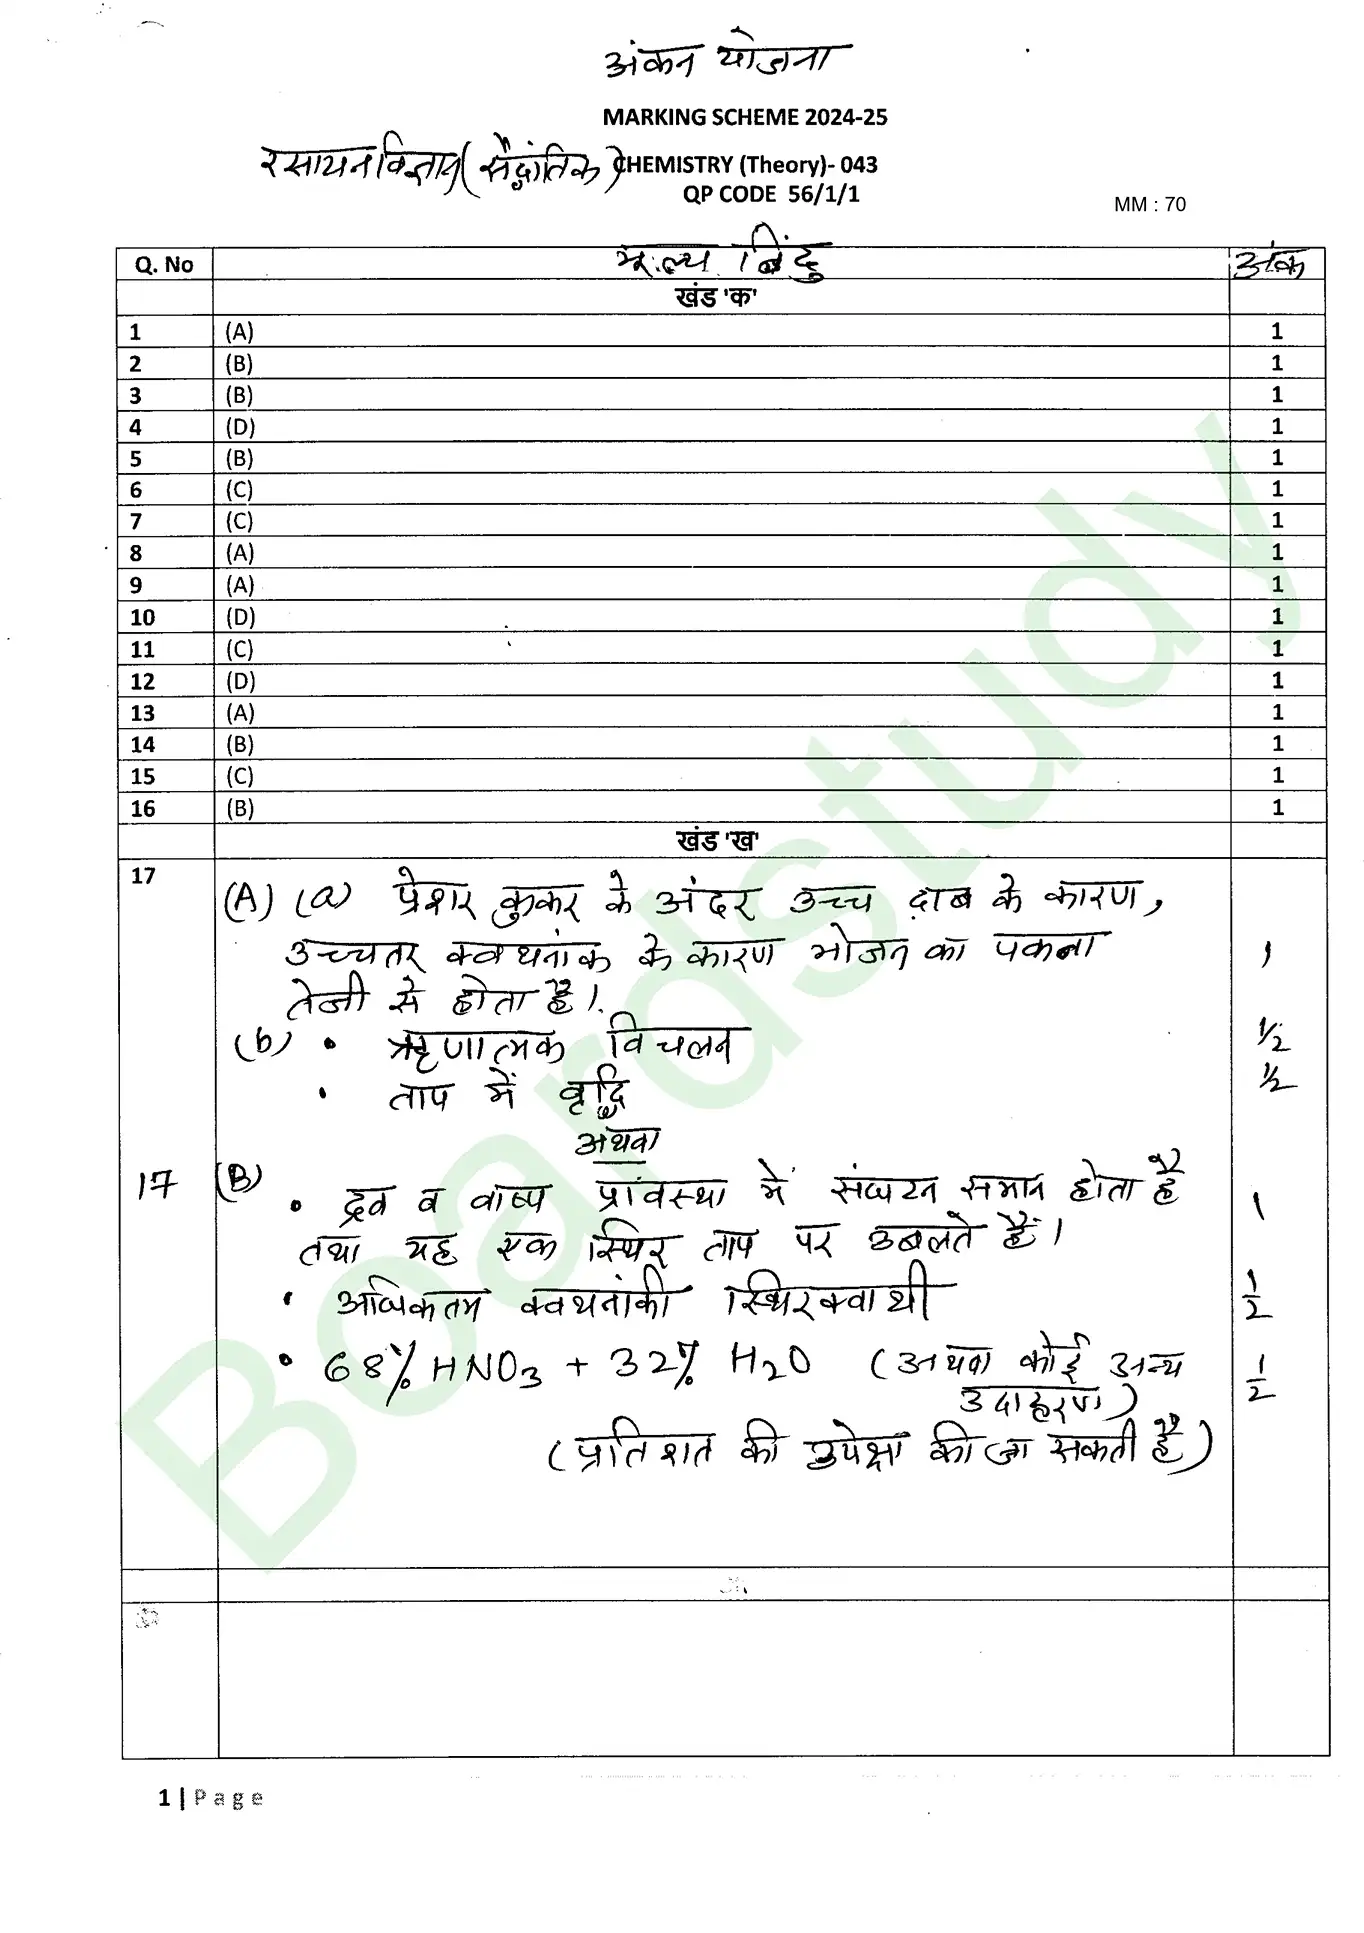 अंकन योजना
MARKING SCHEME 2024-25
रसायन विज्ञान (सैद्धांतिक) CHEMISTRY (Theory)- 043
QP CODE 56/1/1
MM : 70
Q. No मूल्य बिंदु अंक
खंड 'क'
1 (A) 1
2 (B) 1
3 (B) 1
4 (D) 1
5 (B) 1
6 (C) 1
7 (C) 1
8 (A) 1
9 (A) 1
10 (D) 1
11 (C) 1
12 (D) 1
13 (A) 1
14 (B) 1
15 (C) 1
16 (B) 1
खंड 'ख'
17 (A) (a) प्रेशर कुकर के अंदर उच्च दाब के कारण,
उच्चतर क्वथनांक के कारण भोजन का पकना 1
तेजी से होता है।
(b) • ऋणात्मक विचलन 1/2
• ताप में वृद्धि 1/2
अथवा
17 (B) • द्रव व वाष्प प्रावस्था में संघटन समान होता है 1
तथा यह एक स्थिर ताप पर उबलते हैं।
• अधिकतम क्वथनांकी स्थिरक्वाथी 1/2
• 68% HNO3 + 32% H2O (अथवा कोई अन्य 1/2
उदाहरण)
(प्रतिशत की उपेक्षा की जा सकती है)
1 | Page
Boardstudy